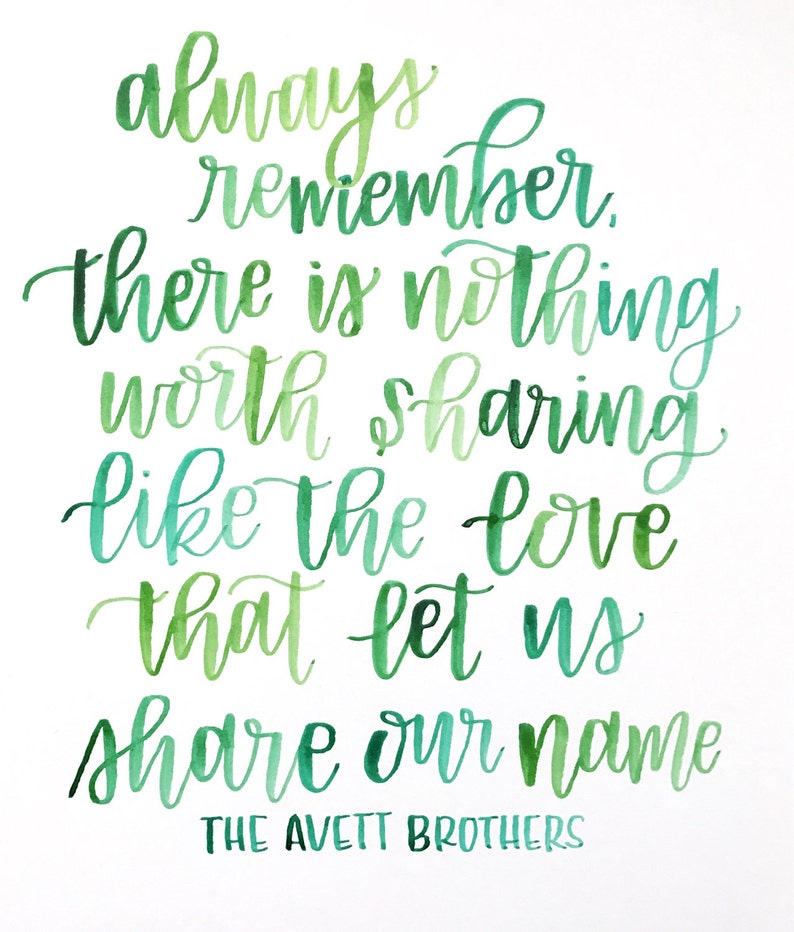 always
remember,
there is nothing
worth sharing
like the love
that let us
share our name
THE AVETT BROTHERS